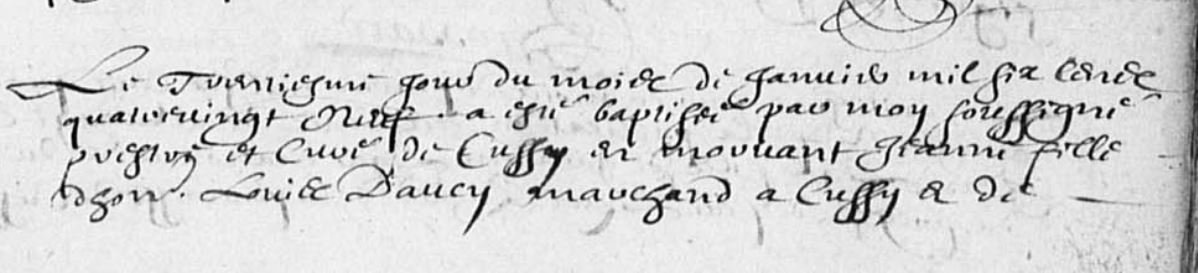 Le Troniesme jour du moies de Janvier mil six cens
quatrevingt Neuf a esté baptisée par moy soussigné
prestre et Curé de Cussy en morvant Jeanne fille
d'hon. Louis Daucy marchand a Cussy & de